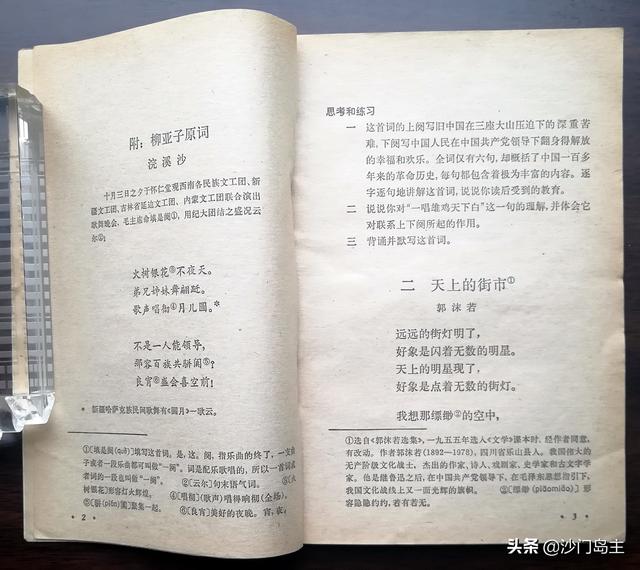 附：柳亚子原词
浣溪沙
十月三日之夕于怀仁堂观西南各民族文工团、新
疆文工团、吉林省延边文工团、内蒙文工团联合演出
歌舞晚会，毛主席命填是阕①，用纪大团结之盛况云
尔②！
火树银花③不夜天。
弟兄姊妹舞翩跹。
歌声唱彻④月儿圆。*
不是一人能领导，
那容百族共骈阗⑤？
良宵⑥盛会喜空前！
* 新疆哈萨克族民间歌舞有《圆月》一歌云。
①〔填是阕(què)〕填写这首词。是，这。阕，指乐曲的终了，一支曲
子或者一段乐曲都可叫做“一阕”。词是配乐歌唱的，所以一首词或
者词的一段也叫做“一阕”。 ②〔云尔〕句末语气词。
树银花〕形容灯火辉煌。 ④〔唱彻〕(歌声)唱得响彻(全场)。
⑤〔骈(pián)阗〕聚集一起。 ⑥〔良宵〕美好的夜晚。宵，夜。
· 2 ·
思考和练习
一 这首词的上阕写旧中国在三座大山压迫下的深重苦
难，下阕写中国人民在中国共产党领导下翻身得解放
的幸福和欢乐。全词仅有六句，却概括了中国一百多
年来的革命历史，每句都包含着极为丰富的内容。逐
字逐句地讲解这首词，说说你读后受到的教育。
二 说说你对“一唱雄鸡天下白”这一句的理解，并体会它
对联系上下阕所起的作用。
三 背诵并默写这首词。
二 天上的街市①
郭沫若
远远的街灯明了，
好象是闪着无数的明星。
天上的明星现了，
好象是点着无数的街灯。
我想那缥缈②的空中，
①选自《郭沫若选集》，一九五五年选入《文学》课本时，经作者同意，
有改动。作者郭沫若(1892—1978)，四川省乐山县人。我国伟大的
无产阶级文化战士，杰出的作家、诗人、戏剧家，史学家和古文字学
家。他是继鲁迅之后，在中国共产党领导下，在毛泽东思想指引下，
我国文化战线上又一面光辉的旗帜。 ②〔缥缈(piāomiǎo)〕形
容隐隐约约，若有若无。
· 3 ·
头条 @沙门岛主